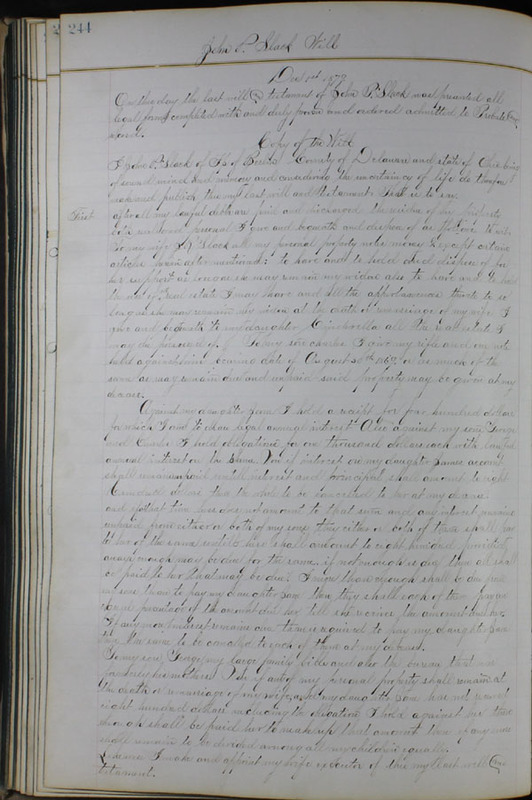 244
John P. Slack Will
Dec 1st 1877
On this day the last will & testament of John P. Slack was presented all
legal forms complied with and duly proven and ordered admitted to Probate
Copy of the Will
I John P. Slack of County of Delaware and state of Ohio being
of sound mind and memory and considering the uncertainty of life do therefore
make and publish this my last will and testament that is to say
First after all my lawful debts are paid and discharged the residue of my property
both real and personal I give and bequeath and dispose of as follows to wit
To my wife Slack all my personal property notes money except certain
articles herein after mentioned to have and to hold and dispose of for
her support as long as she may remain my widow also to have and to hold
the use of real estate I may have and all the appurtenances thereto so
long as she may remain my widow at the death or marriage of my wife I
give and bequeath to my daughter all the real estate I
may die possessed of To my son Charles I give my wife and one note
held against him bearing date of August 20th or so much of the
same as may remain due and unpaid said property may be given at my
decease
Against my daughter Jane I hold a receipt for four hundred dollars
for which I am to claim legal annual interest Also against my sons George
and Charles I hold obligations for one thousand dollars each with
annual interest on the same Now if interest on my daughter Janes account
shall remain unpaid until interest and principal shall amount to eight
hundred dollars then the whole to be cancelled to her at my decease
and if at that time hers does not amount to that sum and any interest remains
unpaid from either or both of my sons they either or both of them shall pay
to her of the same until hers shall amount to eight hundred provided
enough may be due for the same if not enough is due then all shall
be paid to her that may be due If more than enough shall be due from
my sons than to pay my daughter Jane then they shall each of them pay an
equal percentage of the amount due her till she receives the amount due her
If any more interest remains due than is required to pay my daughter Jane
then the same to be cancelled to each of them at my decease
To my son George my large family bible and also the bureau that was
formerly his mothers Now if any of my personal property shall remain at
the death or marriage of my wife and my daughter Jane has not received
eight hundred dollars including the obligation I hold against her then
enough shall be paid her to make up that amount then if any more
shall remain to be divided among all my children equally
I make and appoint my wife executor of this my last will and
testament.